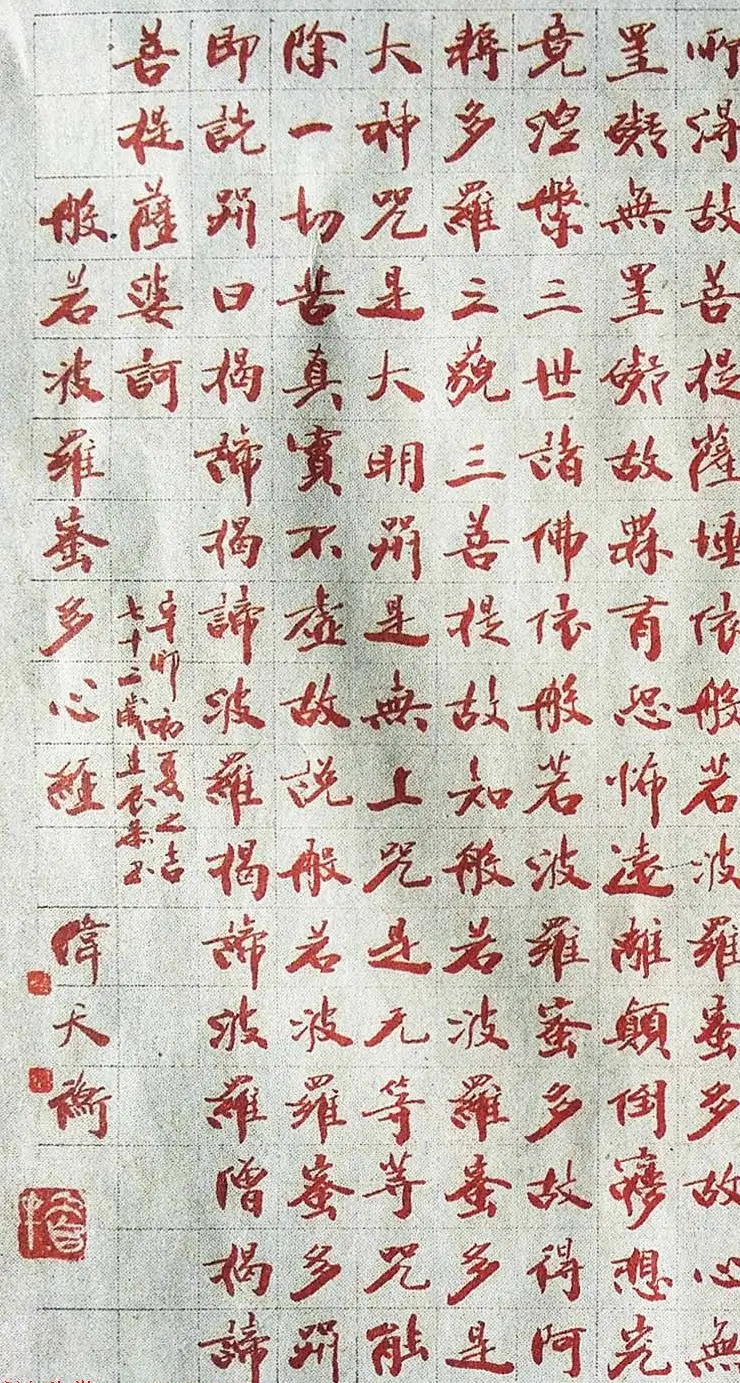 所得故菩提薩埵依般若波羅蜜多故心無
罣礙無罣礙故無有恐怖遠離顛倒夢想究
竟涅槃三世諸佛依般若波羅蜜多故得阿
耨多羅三藐三菩提故知般若波羅蜜多是
大神咒是大明咒是無上咒是无等等咒能
除一切苦真實不虛故說般若波羅蜜多咒
即說咒曰揭諦揭諦波羅揭諦波羅僧揭諦
菩提薩婆訶
辛卯初夏之吉
七十二歲
般若波羅蜜多心經
偉天衡